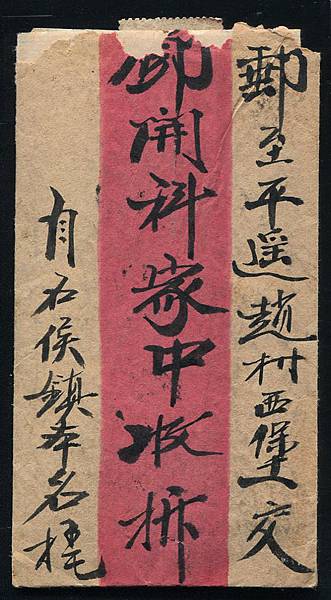 郵至平遥趙村西堡交
邱開科家中收拆
自石侯鎮本名梽